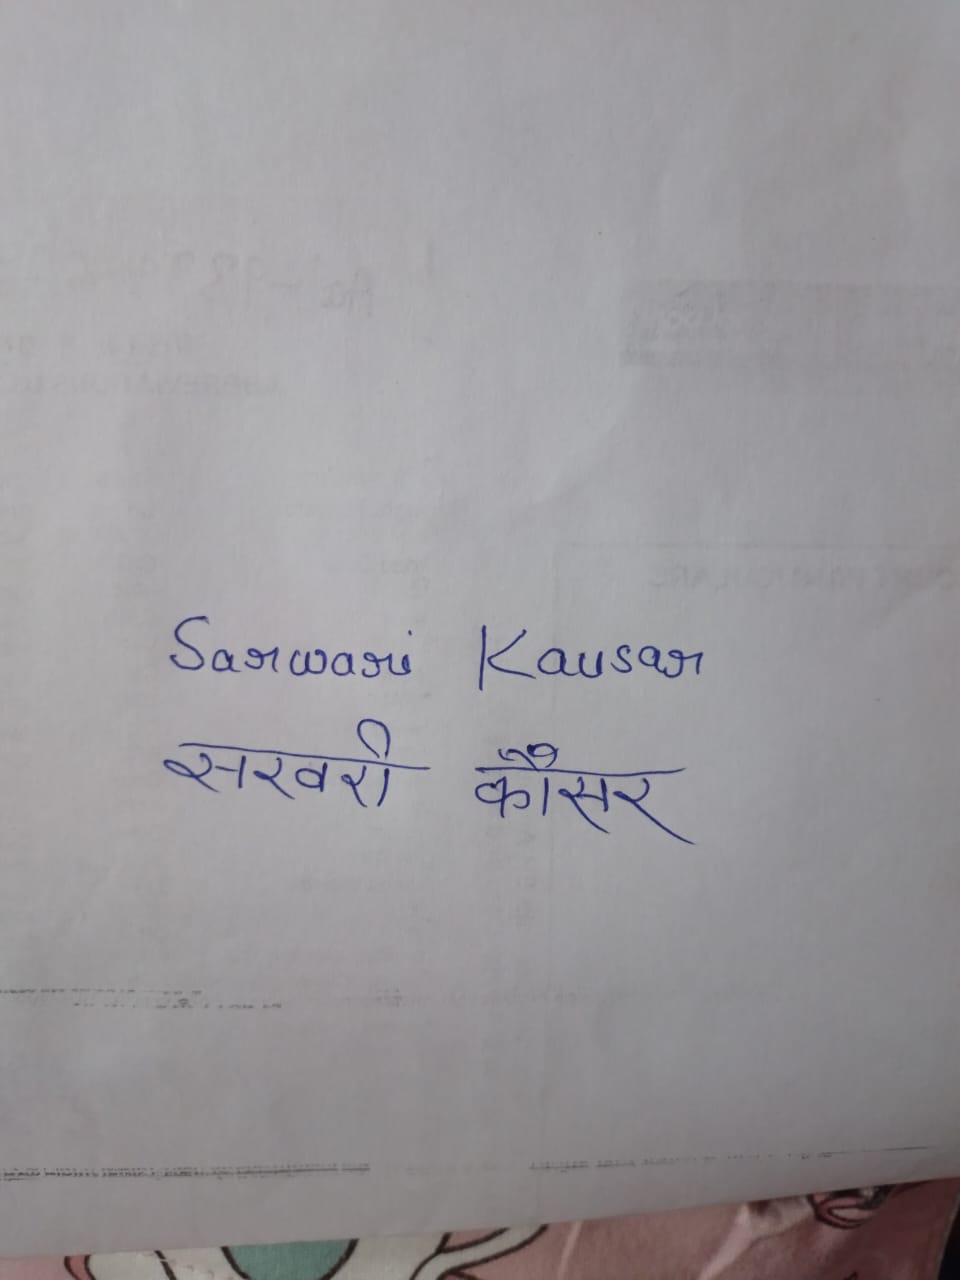 Sarwari Kausar
सरवरी कौसर